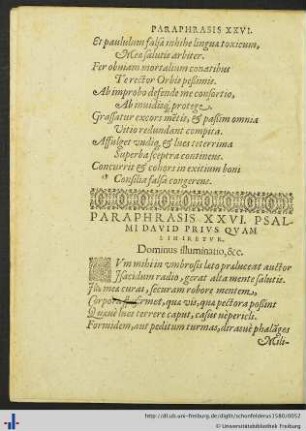 PARAPHRASIS XXVI.
Et paululum falsa inhibe lingua toxicum,
Mea salutis arbiter.
Fer obviam mortalium conatibus
Te rector Orbis pessimis.
Ab improbo defende me consortio,
Ab invidiaq́ protege.
Grassatur excors mētis, & passim omnia
Vitio redundant compita.
Affulget undiq, & lues teterrima
Superba sceptra continens.
Concurrit & cohors in exitium boni
Consilia falsa congerens.
PARAPHRASIS XXVI. PSAL-
MI DAVID PRIVS QVAM
LINIRETVR.
Dominus illuminatio, &c.
Vm mihi in umbrosis lato praluceat auctor
Isacidum radio, gerat alta mente salutis.
mea curat, securam robore mentem,
Corpora firmet, qua vis, qua pectora possint
lues terrere caput, casus
Formidem, aut peditum turmas, phalāges
Mili-
http://dl.ub.uni-freiburg.de/diglit/schonfelderus1580/0052
© Universitätsbibliothek Freiburg